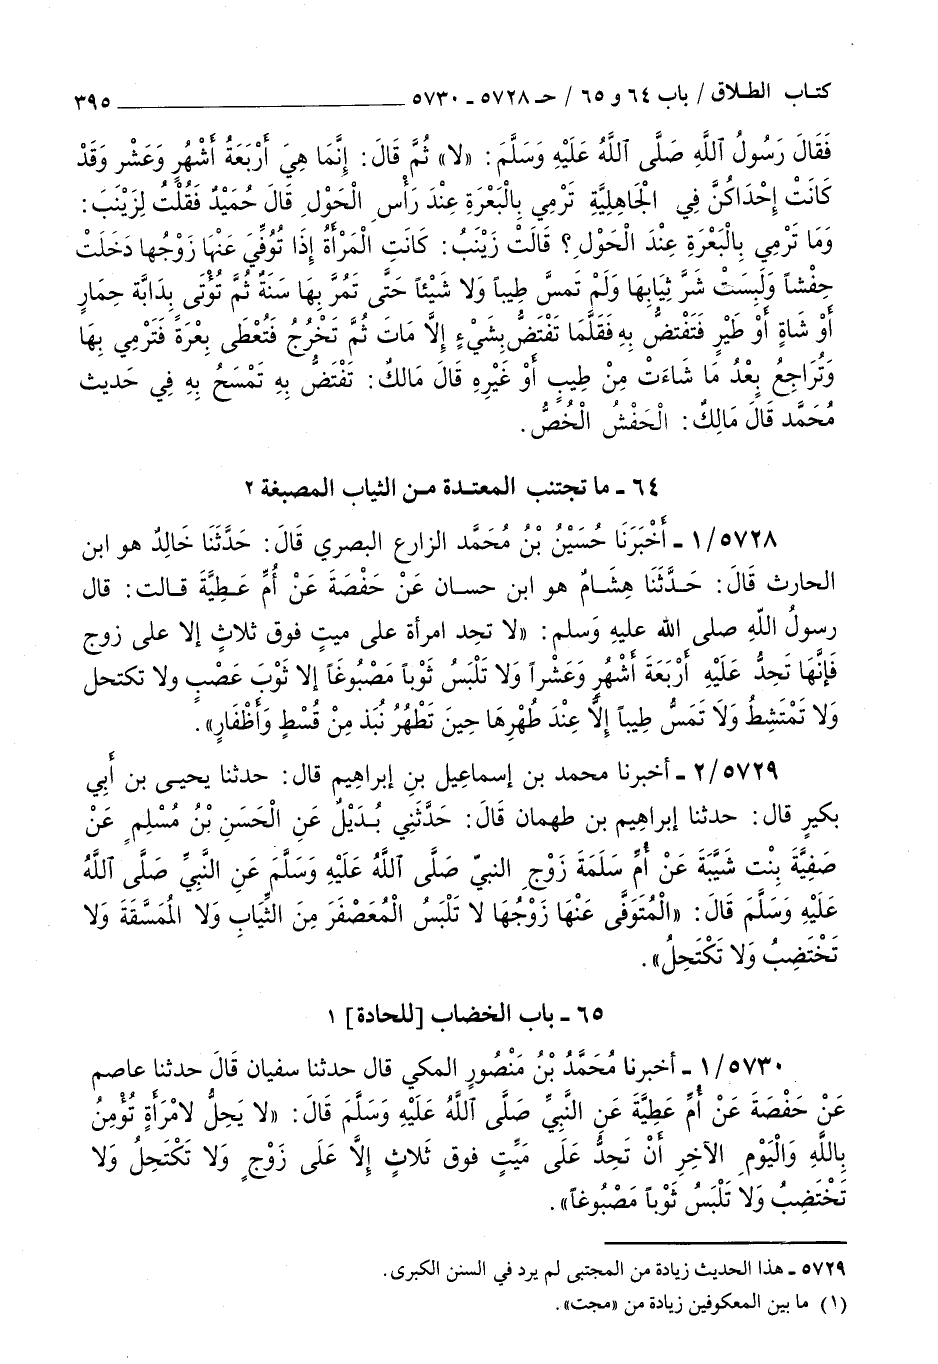 كتاب الطلاق / باب ٦٤ و ٦٥ / حـ ٥٧٢٨ ـ ٥٧٣٠ ـــــــــــــــــ ٣٩٥
فَقَالَ رَسُولُ اللَّهِ صَلَّى ٱللَّهُ عَلَيْهِ وَسَلَّمَ: «لا» ثُمَّ قَالَ: إِنَّمَا هِيَ أَرْبَعَةُ أَشْهُرٍ وَعَشْر وَقَدْ
كَانَتْ إِحْدَاكُنَّ فِي الْجَاهِلِيَّةِ تَرْمِي بِالْبَعْرَةِ عِنْدَ رَأْسِ الْحَوْلِ قَالَ حُمَيْدٌ فَقُلْتُ لِزَيْنَبَ:
وَمَا تَرْمِي بِالْبَعْرَةِ عِنْدَ الْحَوْلِ؟ قَالَتْ زَيْنَبُ: كَانَتِ الْمَرْأَةُ إِذَا تُوُفِّيَ عَنْهَا زَوْجُها دَخَلَتْ
حِفْشاً وَلَبِسَتْ شَرَّ ثِيَابِهَا وَلَمْ تَمسَّ طِيباً وَلا شَيْئاً حَتَّى تَمُرَّ بِهَا سَنَةٌ ثُمَّ تُؤْتَى بِدَابَّة حِمَارٍ
أَوْ شَاةٍ أَوْ طَيْرٍ فَتَفْتَضُّ بِهِ فَقَلَّمَا تَفْتَضُّ بِشَيْءٍ إِلَّا مَاتَ ثُمَّ تَخْرُجُ فَتُعْطَى بِعْرَةً فَتَرْمِي بِهَا
وَتُرَاجِعُ بِعْدُ مَا شَاءَتْ مِنْ طِيبٍ أَوْ غَيْرِهِ قَالَ مَالكٌ: تَفْتَضُّ بِهِ تَمْسَحُ بِهِ فِي حَديث
مُحَمَّد قَالَ مَالِكٌ: الْحَفْشُ الْخُصُّ.
٦٤ ـ ما تجتنب المعتدة من الثياب المصبغة ٢
٥٧٢٨/١ ـ أَخْبَرَنَا حُسَيْنُ بْنُ مُحَمَّد الزارع البصري قَالَ: حَدَّثَنَا خَالِدٌ هو ابن
الحارث قَالَ: حَدَّثَنَا هِشَامٌ هو ابن حسان عَنْ حَفْصَةَ عَنْ أُمِّ عَطِيَّةَ قالت: قال
رسولُ اللّهِ صلى الله عليهِ وَسلم: «لا تحد امرأة على ميتٍ فوق ثلاثٍ إلا على زوج
فَإِنَّهَا تَحِدُّ عَلَيْهِ أَرْبَعَةَ أَشْهُرٍ وَعَشْراً وَلَا تَلْبَسُ ثَوْباً مَصْبُوغَاً إلا ثَوْبَ عَصْبٍ ولا تكتحل
وَلَا تَمْتَشِطُ وَلَا تَمَسُّ طِيباً إِلَّا عِنْدَ طُهْرِهَا حِينَ تَطْهُرُ نُبَذ مِنْ قُسْطٍ وَأَظْفَارٍ».
٥٧٢٩/٢ ـ أخبرنا محمد بن إسماعيل بنِ إبراهيم قال: حدثنا يحيى بن أَبي
بكيرٍ قال: حدثنا إبراهيم بن طهمان قَالَ: حَدَّثَنِي بُدَيْلٌ عَنِ الْحَسَنِ بْنُ مُسْلِمٍ عَنْ
صَفِيَّةَ بِنْت شَيْبَةَ عَنْ أُمِّ سَلَمَةَ زَوْجِ النبيّ صَلَّى ٱللَّهُ عَلَيْهِ وَسَلَّمَ عَنِ النَّبِيِّ صَلَّى ٱللَّهُ
عَلَيْهِ وَسَلَّمَ قَالَ: «الْمُتَوَفَّى عَنْهَا زَوْجُهَا لا تَلْبَسُ الْمُعَصْفَرَ مِنَ الثِّيَابِ وَلا الْمُمَشَّقَةَ وَلَا
تَخْتَضِبُ وَلَا تَكْتَحِلُ».
٦٥ ـ باب الخضاب [للحادة] ١
٥٧٣٠/١ ـ أخبرنا مُحَمَّدُ بْنُ مَنْصُورٍ المكي قال حدثنا سفيان قَالَ حدثنا عاصم
عَنْ حَفْصَةَ عَنْ أُمِّ عَطِيَّةَ عَنِ النَّبِيِّ صَلَّى ٱللَّهُ عَلَيْهِ وَسَلَّمَ قَالَ: «لا يَحِلُّ لامْرَأَةٍ تُؤْمِنُ
بِاللَّهِ وَالْيَوْمِ الآخِرِ أَنْ تَحِدَّ عَلَى مَيِّتٍ فوق ثَلاثٍ إِلَّا عَلَى زَوْجٍ وَلَا تَكْتَحِلُ وَلَا
تَخْتَضِبُ وَلَا تَلْبَسُ ثَوْباً مَصْبُوغاً».
٥٧٢٩ ـ هذا الحديث زيادة من المجتبى لم يرد في السنن الكبرى.
(١) ما بين المعكوفين زيادة من «مجت».